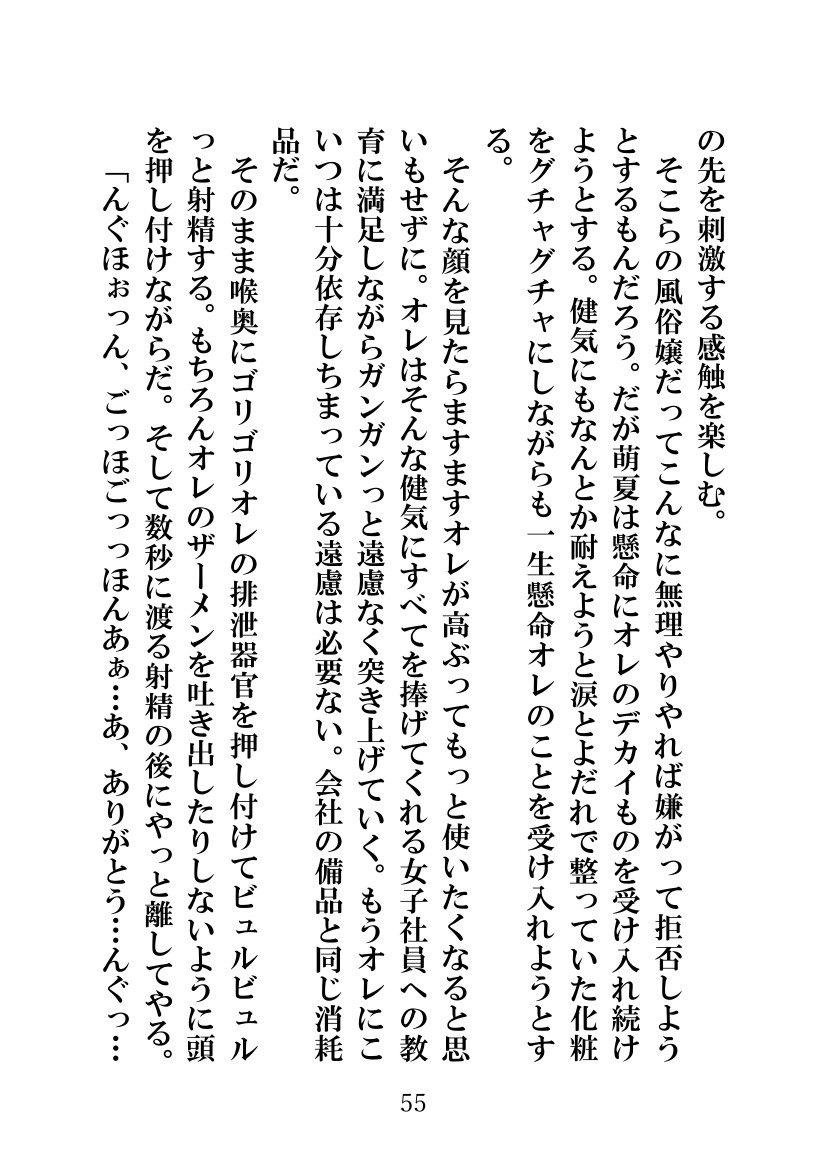 の先を刺激する感触を楽しむ。
　そこらの風俗嬢だってこんなに無理やりやれば嫌がって拒否しよう
とするもんだろう。だが萌夏は懸命にオレのデカイものを受け入れ続け
ようとする。健気にもなんとか耐えようと涙とよだれで整っていた化粧
をグチャグチャにしながらも一生懸命オレのことを受け入れようとす
る。
　そんな顔を見たらますますオレが高ぶってもっと使いたくなると思
いもせずに。オレはそんな健気にすべてを捧げてくれる女子社員への教
育に満足しながらガンガンっと遠慮なく突き上げていく。もうオレにこ
いつは十分依存しちまっている遠慮は必要ない。会社の備品と同じ消耗
品だ。
　そのまま喉奥にゴリゴリオレの排泄器官を押し付けてビュルビュル
っと射精する。もちろんオレのザーメンを吐き出したりしないように頭
を押し付けながらだ。そして数秒に渡る射精の後にやっと離してやる。
「んぐほぉっん、ごっほごっっほんあぁ…あ、ありがとう…んぐっ…
55